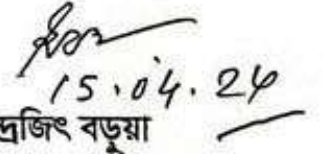 15.04.24
দ্রজিৎ বড়ুয়া